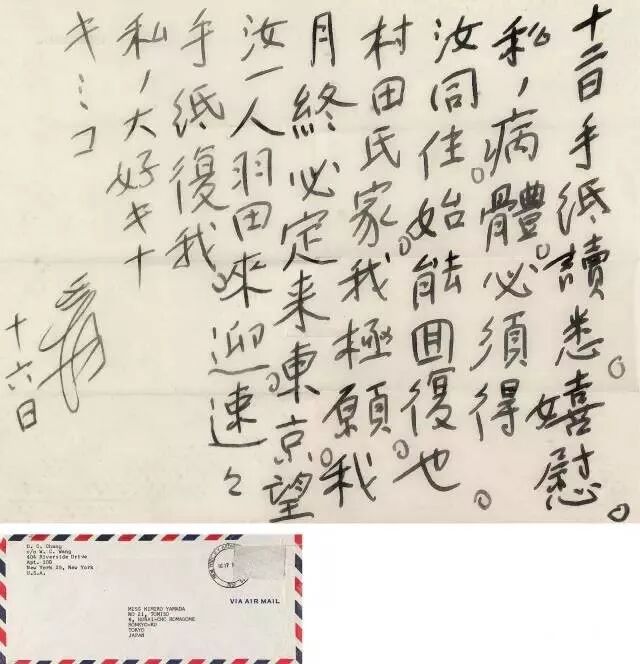 十二日手紙讀悉。嬉慰。
私ノ病體。必須得
汝同住。始能囬復也。
村田氏家。我極願。我
月終必定来東京。望
汝一人羽田來迎。速々
手紙復我。
私ノ大好キナ
キミコ
爰
十六日
D. C. Chang
c/o W. C. Wang
404 Riverside Drive
Apt. 10B
New York 25, New York
U.S.A.
VIA AIR MAIL
MISS KIMIKO YAMADA
NO 21, TOMISO
6, KOMAGOME
TOKYO
JAPAN